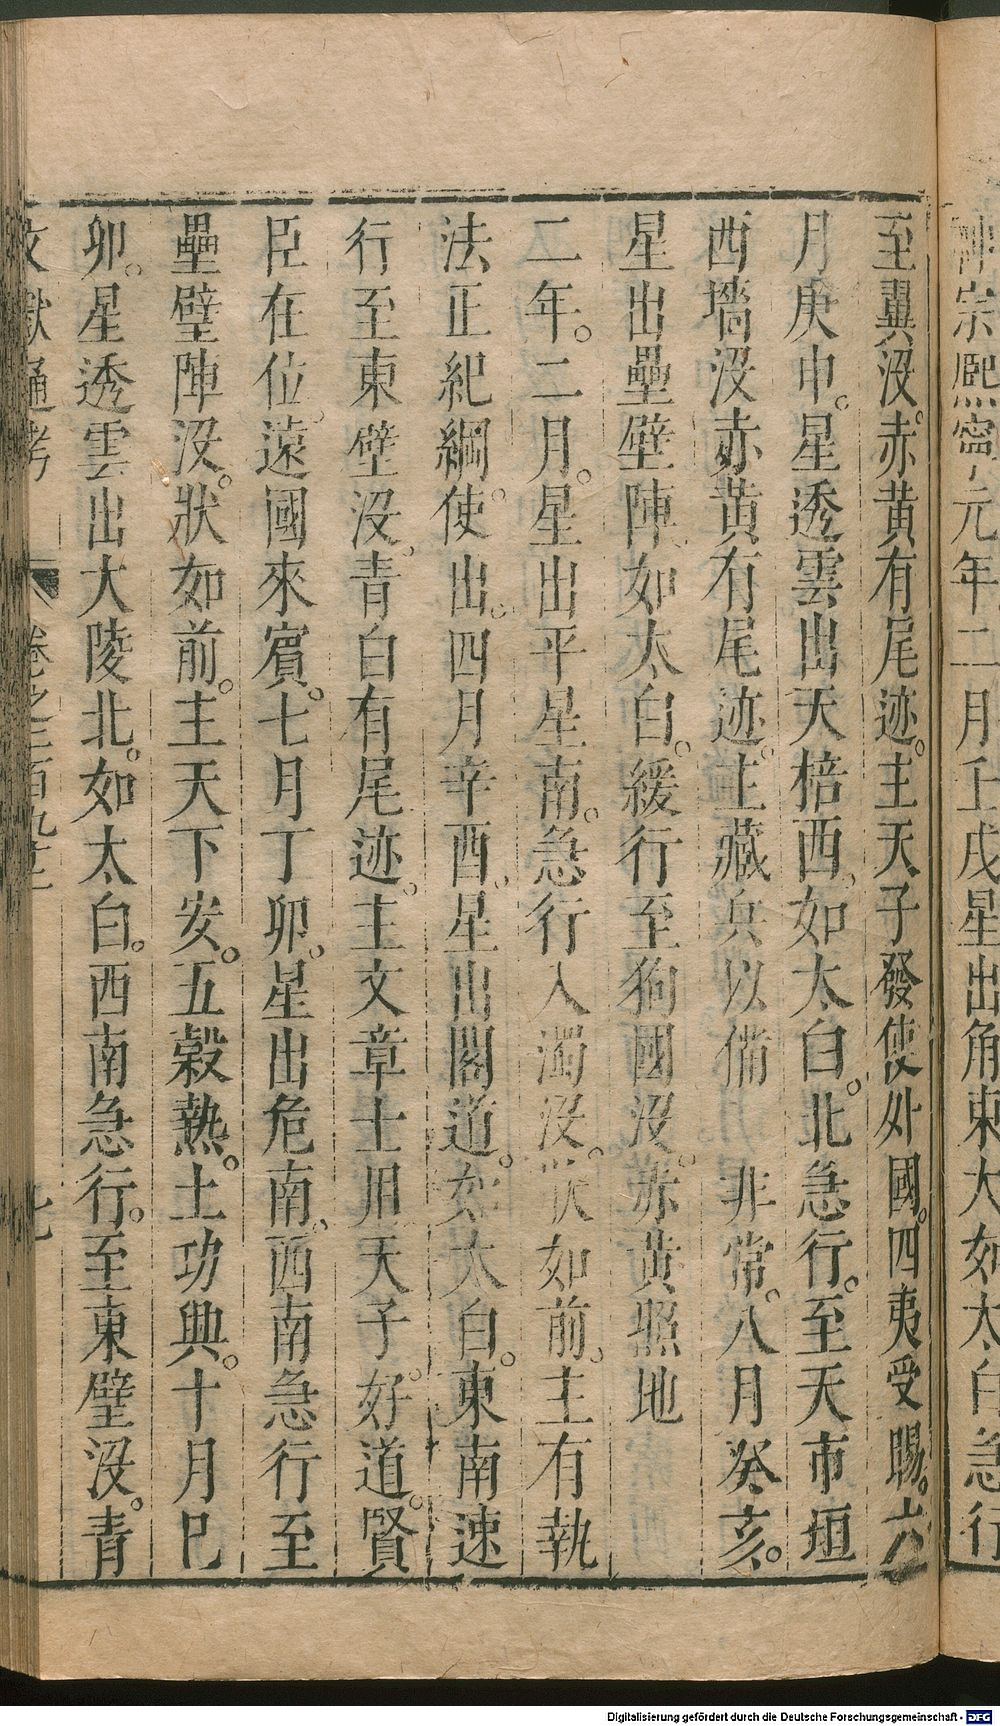 神宗熙寧元年二月壬戌星出角東大如太白急行
至翼沒。赤黃有尾迹。主天子發使外國。四夷受賜。六
月庚申。星透雲出天棓西。如太白。北急行。至天市垣
西墻沒赤黃有尾迹。主藏兵以備非常。八月癸亥。
星出壘壁陣如太白。緩行至狗國沒。赤黃照地
二年。二月。星出平星南。急行入濁沒。狀如前。主有執
法正紀綱。使出。四月辛酉。星出閣道。如太白。東南速
行至東壁沒。青白有尾迹。主文章士用天子好道。賢
臣在位。遠國來賓。七月丁卯。星出危南。西南急行至
壘壁陣沒。狀如前。主天下安。五穀熱。土功興。十月巳
卯。星透雲出大陵北。如太白。西南急行。至東壁沒。青
文獻通考 卷之二百九十二 七
Digitalisierung gefördert durch die Deutsche Forschungsgemeinschaft - DFG